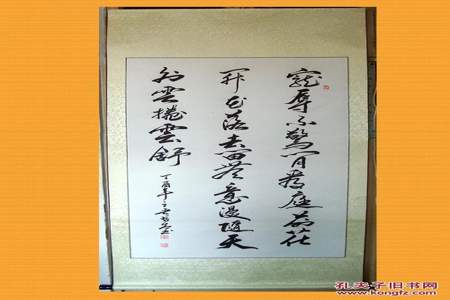 寵辱不驚閒看庭前花
開花落去留無意漫隨天
外雲捲雲舒
丁酉年
孔夫子旧书网
www.kongfz.com